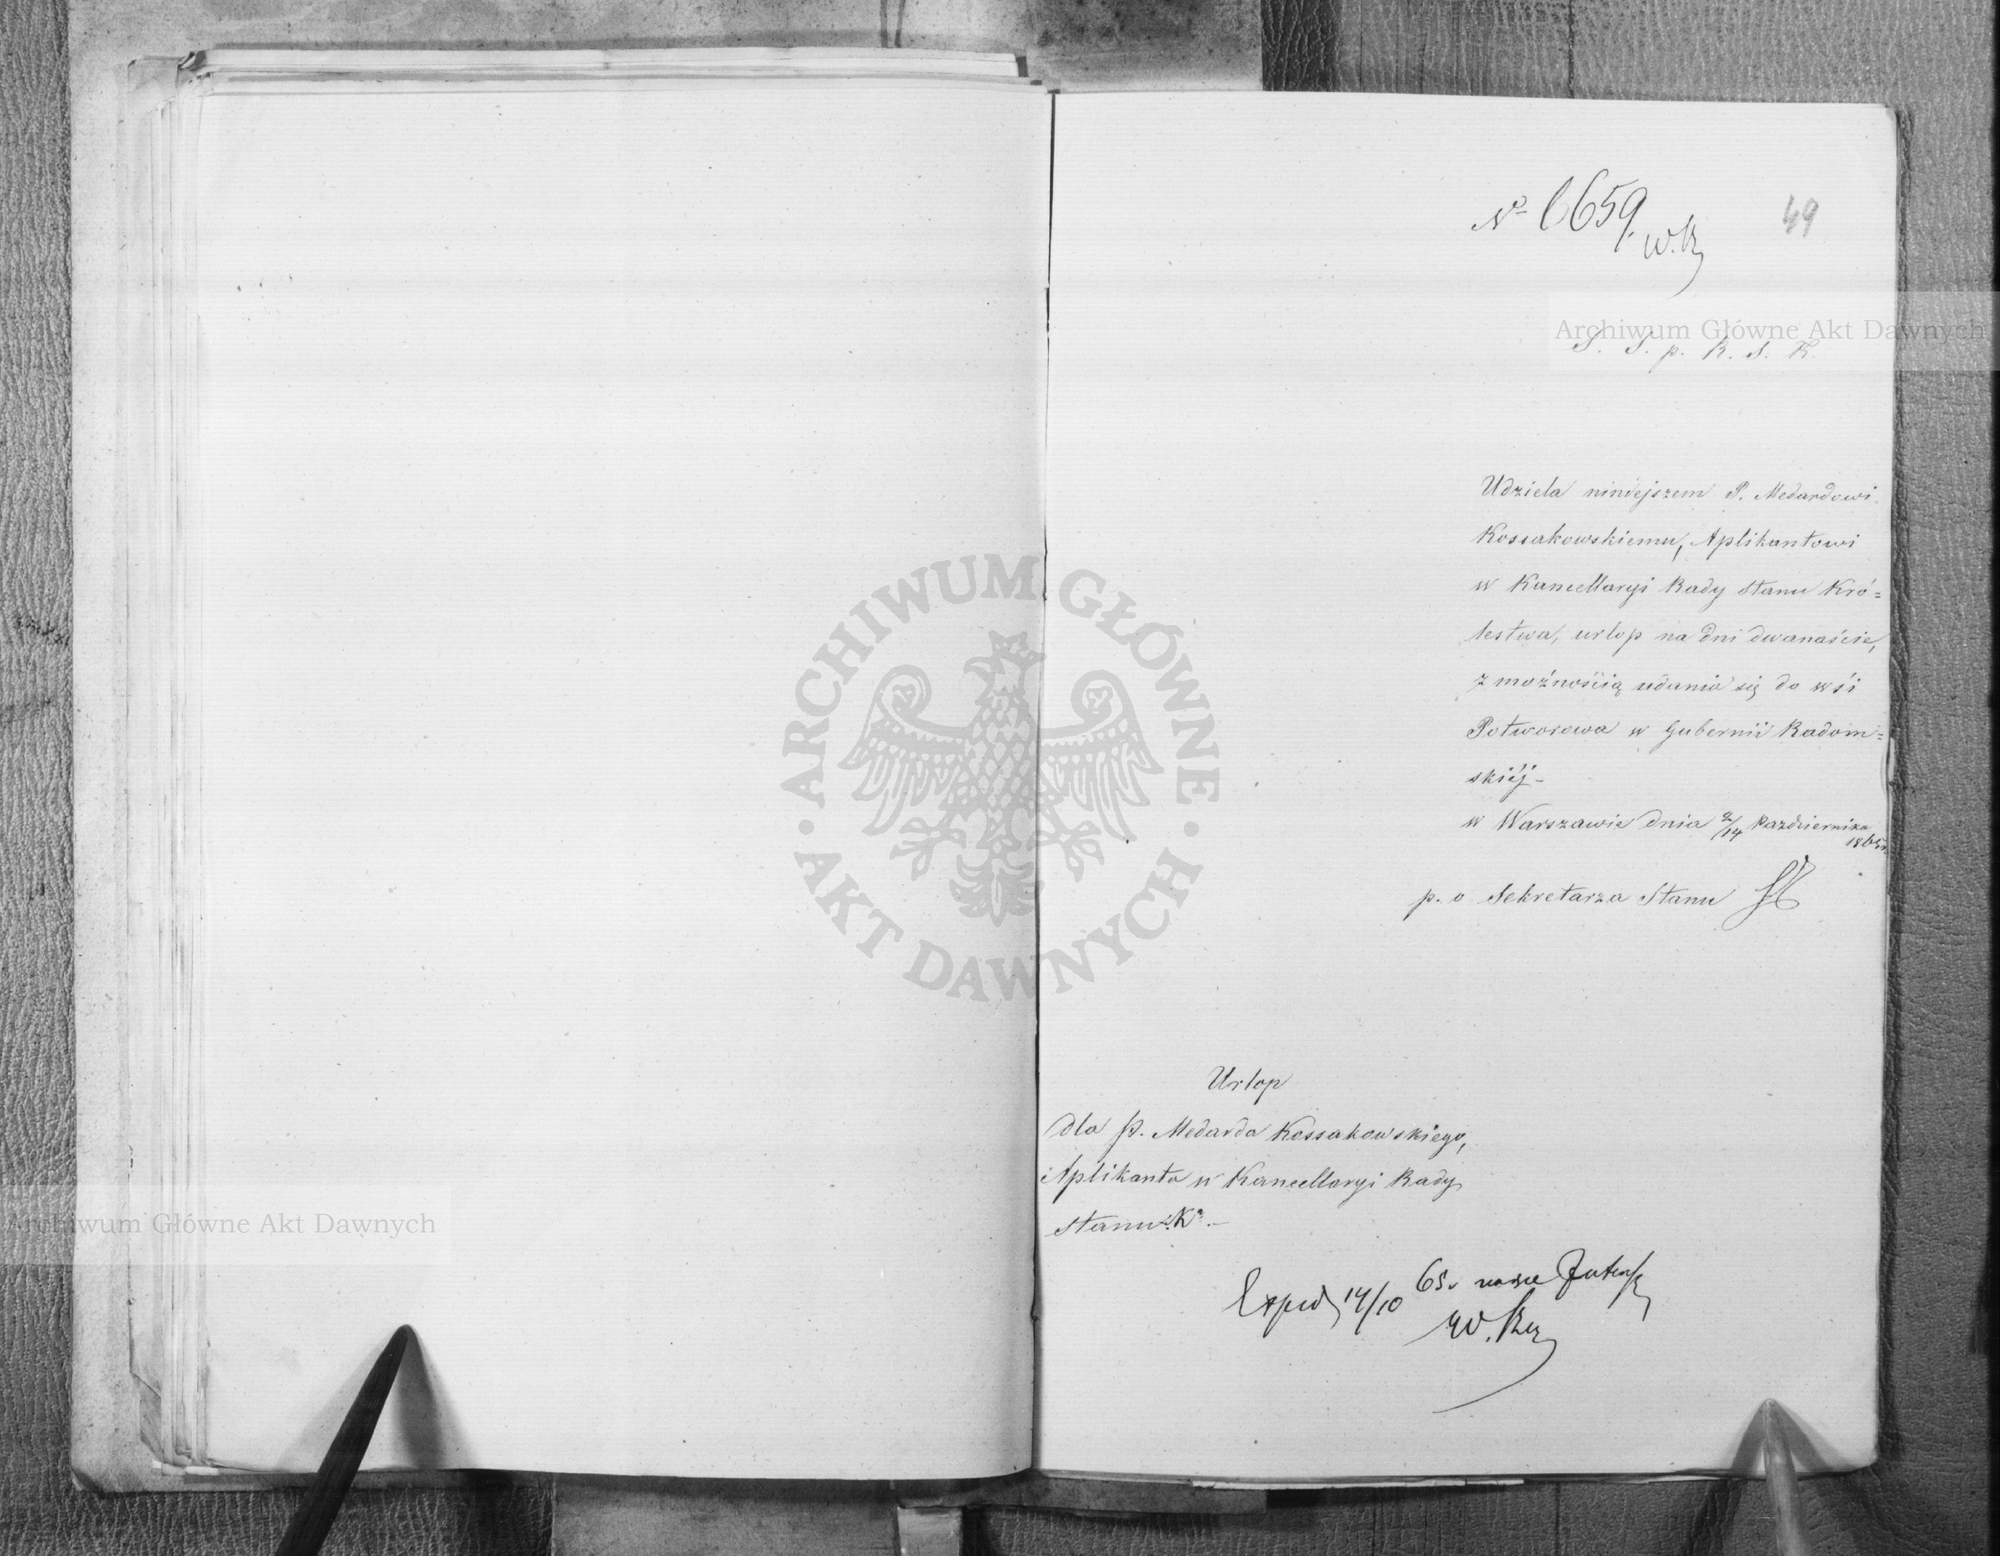 № 6659.
W. K
49
S. S. p. R. S. K.
Udziela niniejszem P. Medardowi
Kossakowskiemu, Aplikantowi
w Kancellaryi Rady Stanu Kró=
lestwa, urlop na dni dwanaście,
z możnością udania się do wsi
Potworowa w Gubernii Radom=
skiéj -
w Warszawie dnia 2/14 Października
1865 r.
p. o Sekretarza Stanu
Urlop
dla P. Medarda Kossakowskiego,
Aplikanta w Kancellaryi Rady
Stanu K. -
Exped 14/10 65
Archiwum Główne Akt Dawnych
Archiwum Główne Akt Dawnych
ARCHIWUM GŁÓWNE · AKT DAWNYCH ·